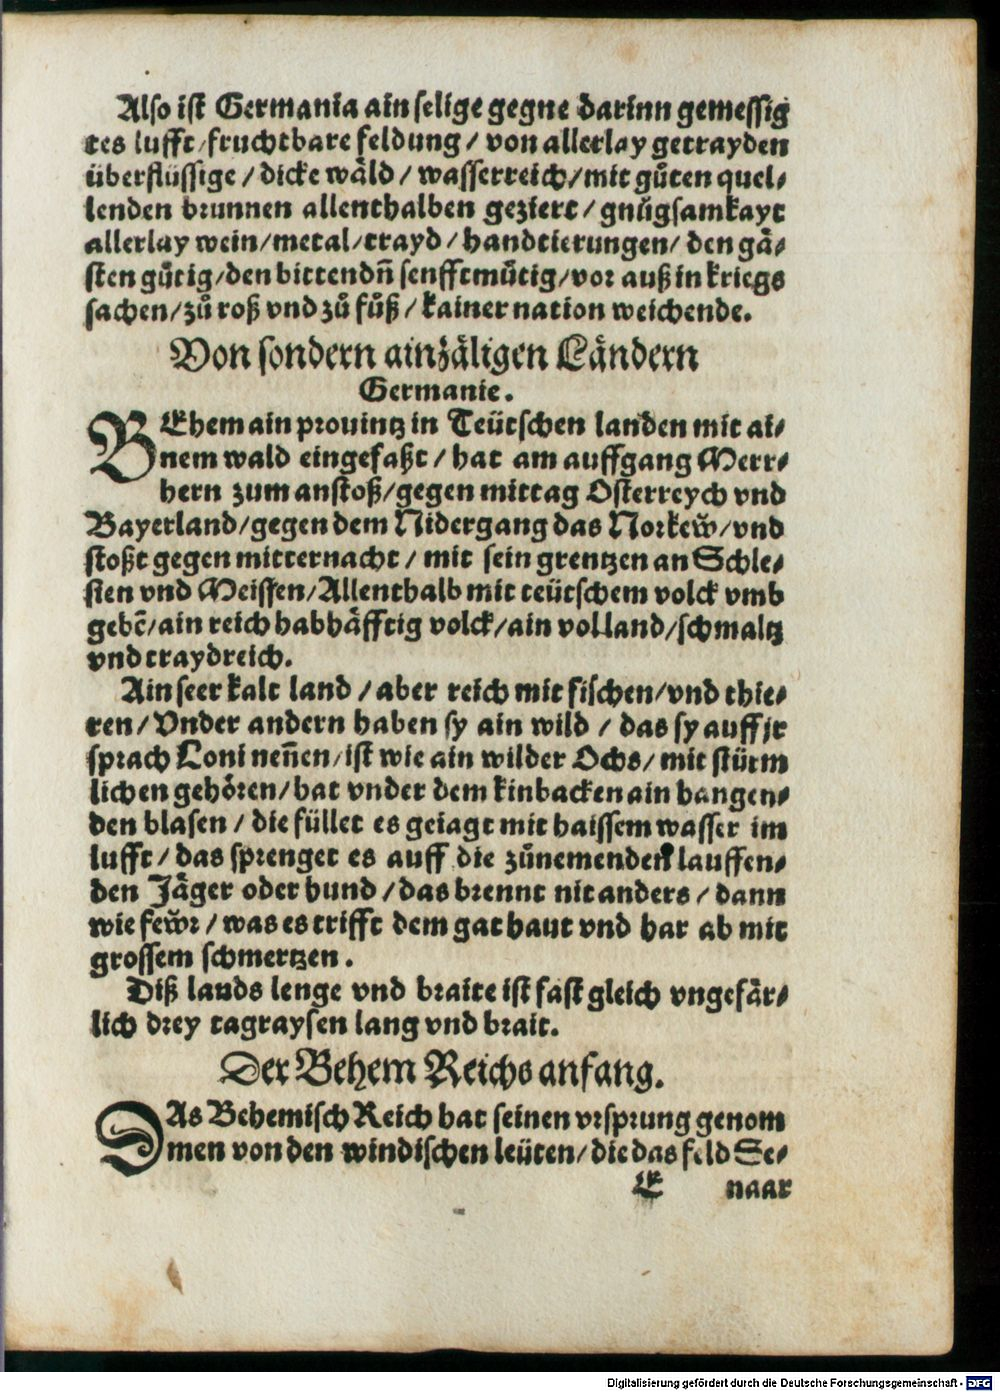 Also ist Germania ain selige gegne darinn gemessig
tes lufft/fruchtbare feldung/ von allerlay getrayden
überflüssige/ dicke wäld/ wasserreich/mit gůten quel⸗
lenden brunnen allenthalben geziert/ gnůgsamkayt
allerlay wein/metal/trayd/ handtierungen/ den gä⸗
sten gůtig/den bittendn̄ senfftmůtig/vor auß in kriegs
sachen/zů roß vnd zů fůß/ kainer nation weichende.
Von sondern ainzäligen Ländern
Germanie.
BEhem ain prouintz in Teütschen landen mit ai⸗
nem wald eingefaßt/ hat am auffgang Merr⸗
hern zum anstoß/gegen mittag Osterreych vnd
Bayerland/gegen dem Nidergang das Norkew̌/vnd
stoßt gegen mitternacht/ mit sein grentzen an Schle⸗
sien vnd Meissen/Allenthalb mit teütschem volck vmb
gebē/ain reich habhäfftig volck/ain volland/schmaltz
vnd traydreich.
Ain seer kalt land/aber reich mit fischen/vnd thie⸗
ren/Vnder andern haben sy ain wild/ das sy auff jr
sprach Loni nen̄en/ist wie ain wilder Ochs/ mit stürm
lichen gehören/hat vnder dem kinbacken ain hangen⸗
den blasen/ die füllet es geiagt mit haissem wasser im
lufft/ das sprenget es auff die zůnemenden lauffen⸗
den Jäger oder hund/das brennt nit anders/ dann
wie few̌r/was es trifft dem gat haut vnd har ab mit
grossem schmertzen.
Diß lands lenge vnd braite ist fast gleich vngefär⸗
lich drey tagraysen lang vnd brait.
Der Behem Reichs anfang.
DAs Behemisch Reich hat seinen vrsprung genom
men von den windischen leüten/die das feld Se⸗
E naar
Digitalisierung gefördert durch die Deutsche Forschungsgemeinschaft - DFG